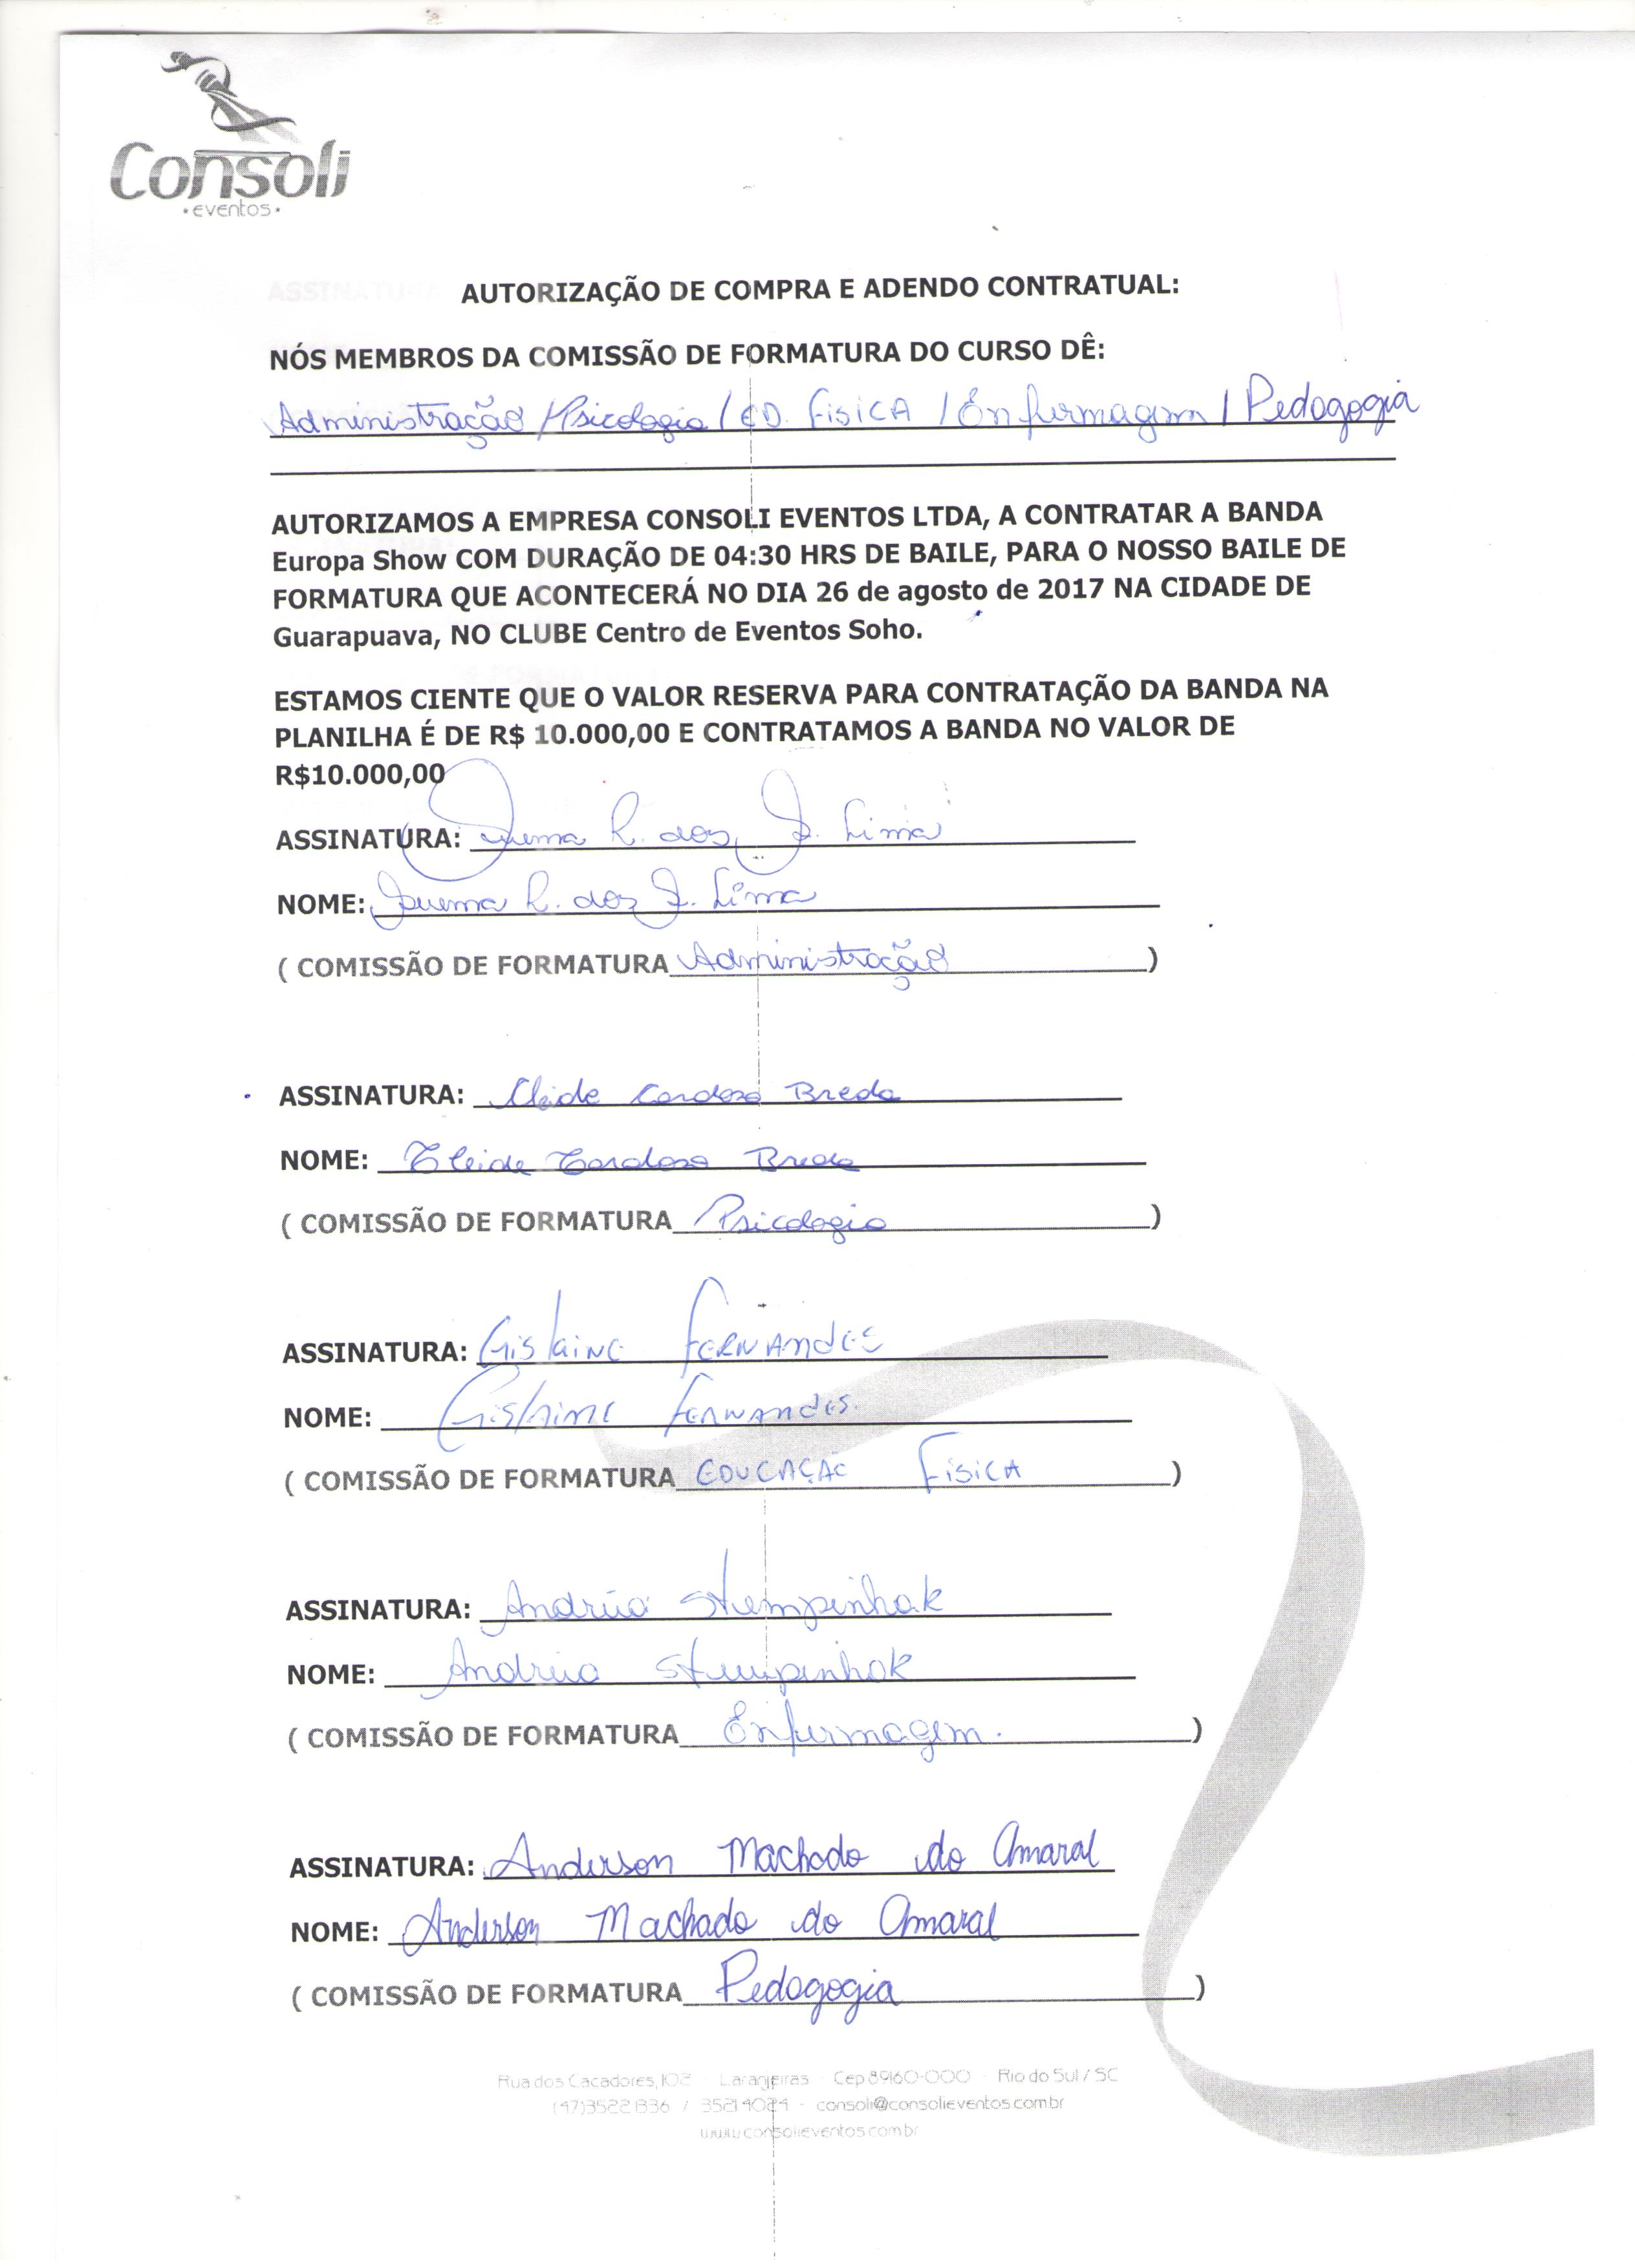 Consoli
• eventos •
AUTORIZAÇÃO DE COMPRA E ADENDO CONTRATUAL:
NÓS MEMBROS DA COMISSÃO DE FORMATURA DO CURSO DÊ:
Administração / Psicologia / ED. FísICA / Enfermagem / Pedagogia
AUTORIZAMOS A EMPRESA CONSOLI EVENTOS LTDA, A CONTRATAR A BANDA
Europa Show COM DURAÇÃO DE 04:30 HRS DE BAILE, PARA O NOSSO BAILE DE
FORMATURA QUE ACONTECERÁ NO DIA 26 de agosto de 2017 NA CIDADE DE
Guarapuava, NO CLUBE Centro de Eventos Soho.
ESTAMOS CIENTE QUE O VALOR RESERVA PARA CONTRATAÇÃO DA BANDA NA
PLANILHA É DE R$ 10.000,00 E CONTRATAMOS A BANDA NO VALOR DE
R$10.000,00
ASSINATURA: R. dos Lima
NOME: R. dos Lima
( COMISSÃO DE FORMATURA Administração )
ASSINATURA: Cleide Cardoso Breda
NOME: Cleide Cardoso Breda
( COMISSÃO DE FORMATURA Psicologia )
ASSINATURA: Gislaine FERNANDES
NOME: Gislaine FERNANDES.
( COMISSÃO DE FORMATURA EDUCAÇÃO FísICA )
ASSINATURA: Andréia Stempinhak
NOME: Andréia Stempinhak
( COMISSÃO DE FORMATURA Enfermagem. )
ASSINATURA: Anderson Machado do Amaral
NOME: Anderson Machado do Amaral
( COMISSÃO DE FORMATURA Pedagogia )
Rua dos Cacadores, 102 - Laranjeiras - Cep 89160-000 - Rio do Sul / SC
(47)35221336 / 35214024 - consoli@consolieventos.com.br
www.consolieventos.com.br